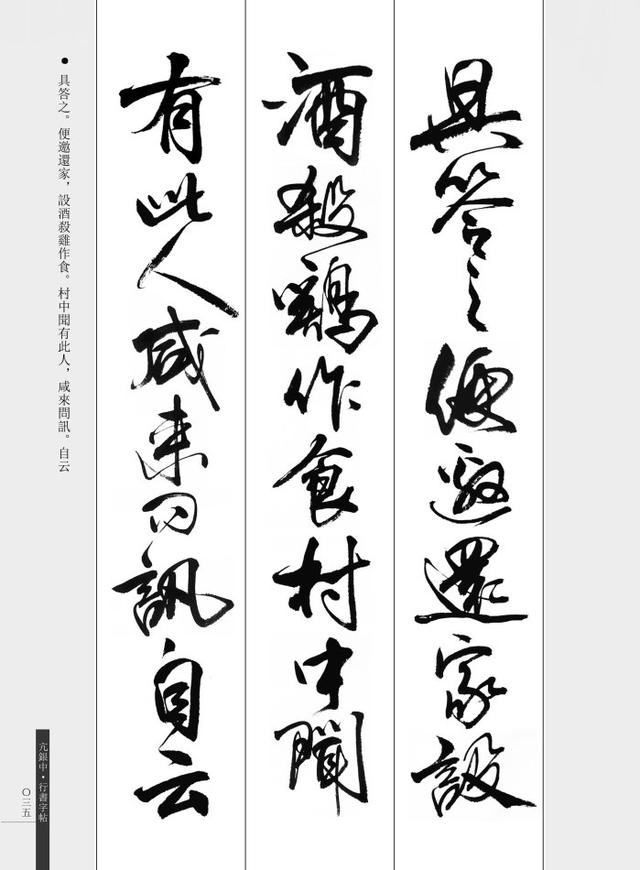 具答之便邀還家設
酒殺鷄作食村中聞
有此人咸来问訊自云
● 具答之。便邀還家，設酒殺雞作食。村中聞有此人，咸來問訊。自云
亢銀中·行書字帖
〇三五